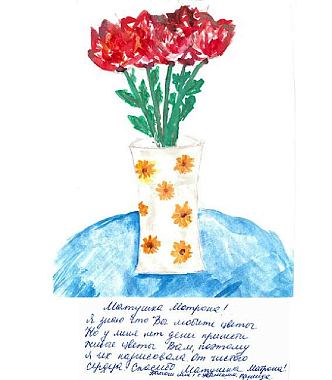 Матушка Матрона!
Я знаю что Вы любите цветы
Но у меня нет денег принести
живые цветы Вам, поэтому
я их нарисовала от чистого
сердца! Спасибо Матушка Матрона!